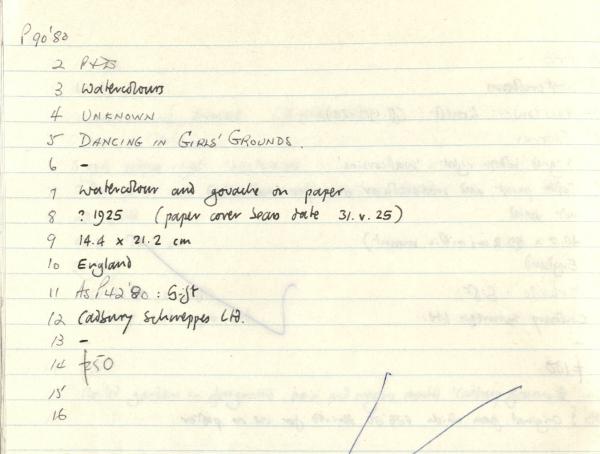 P90'80
2 P+D
3 Watercolours
4 UNKNOWN
5 DANCING IN GIRLS' GROUNDS.
6 -
7 Watercolour and gouache on paper
8 ? 1925 (paper cover bears date 31. v. 25)
9 14.4 x 21.2 cm
10 England
11 As P42'80 : Gift
12 Cadbury Schweppes Ltd.
13 -
14 £50
15
16